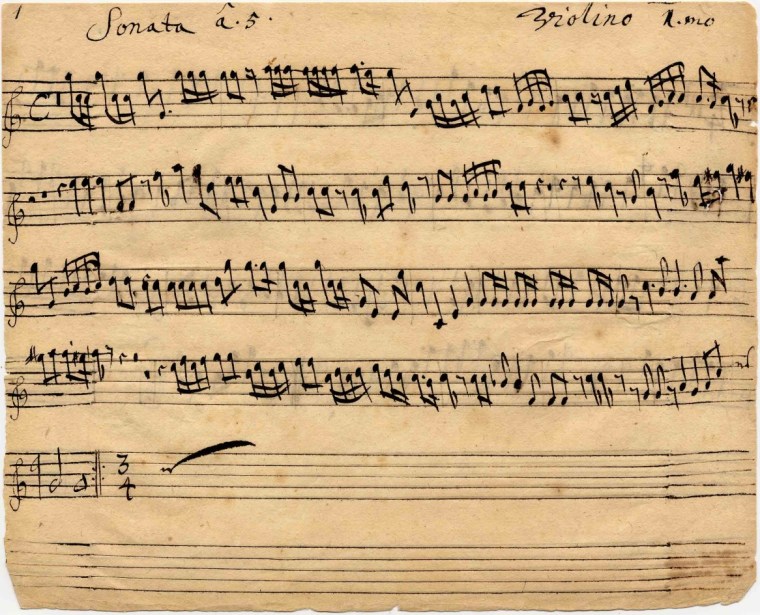 1 Sonata â. 5. Violino 1.mo
3
4